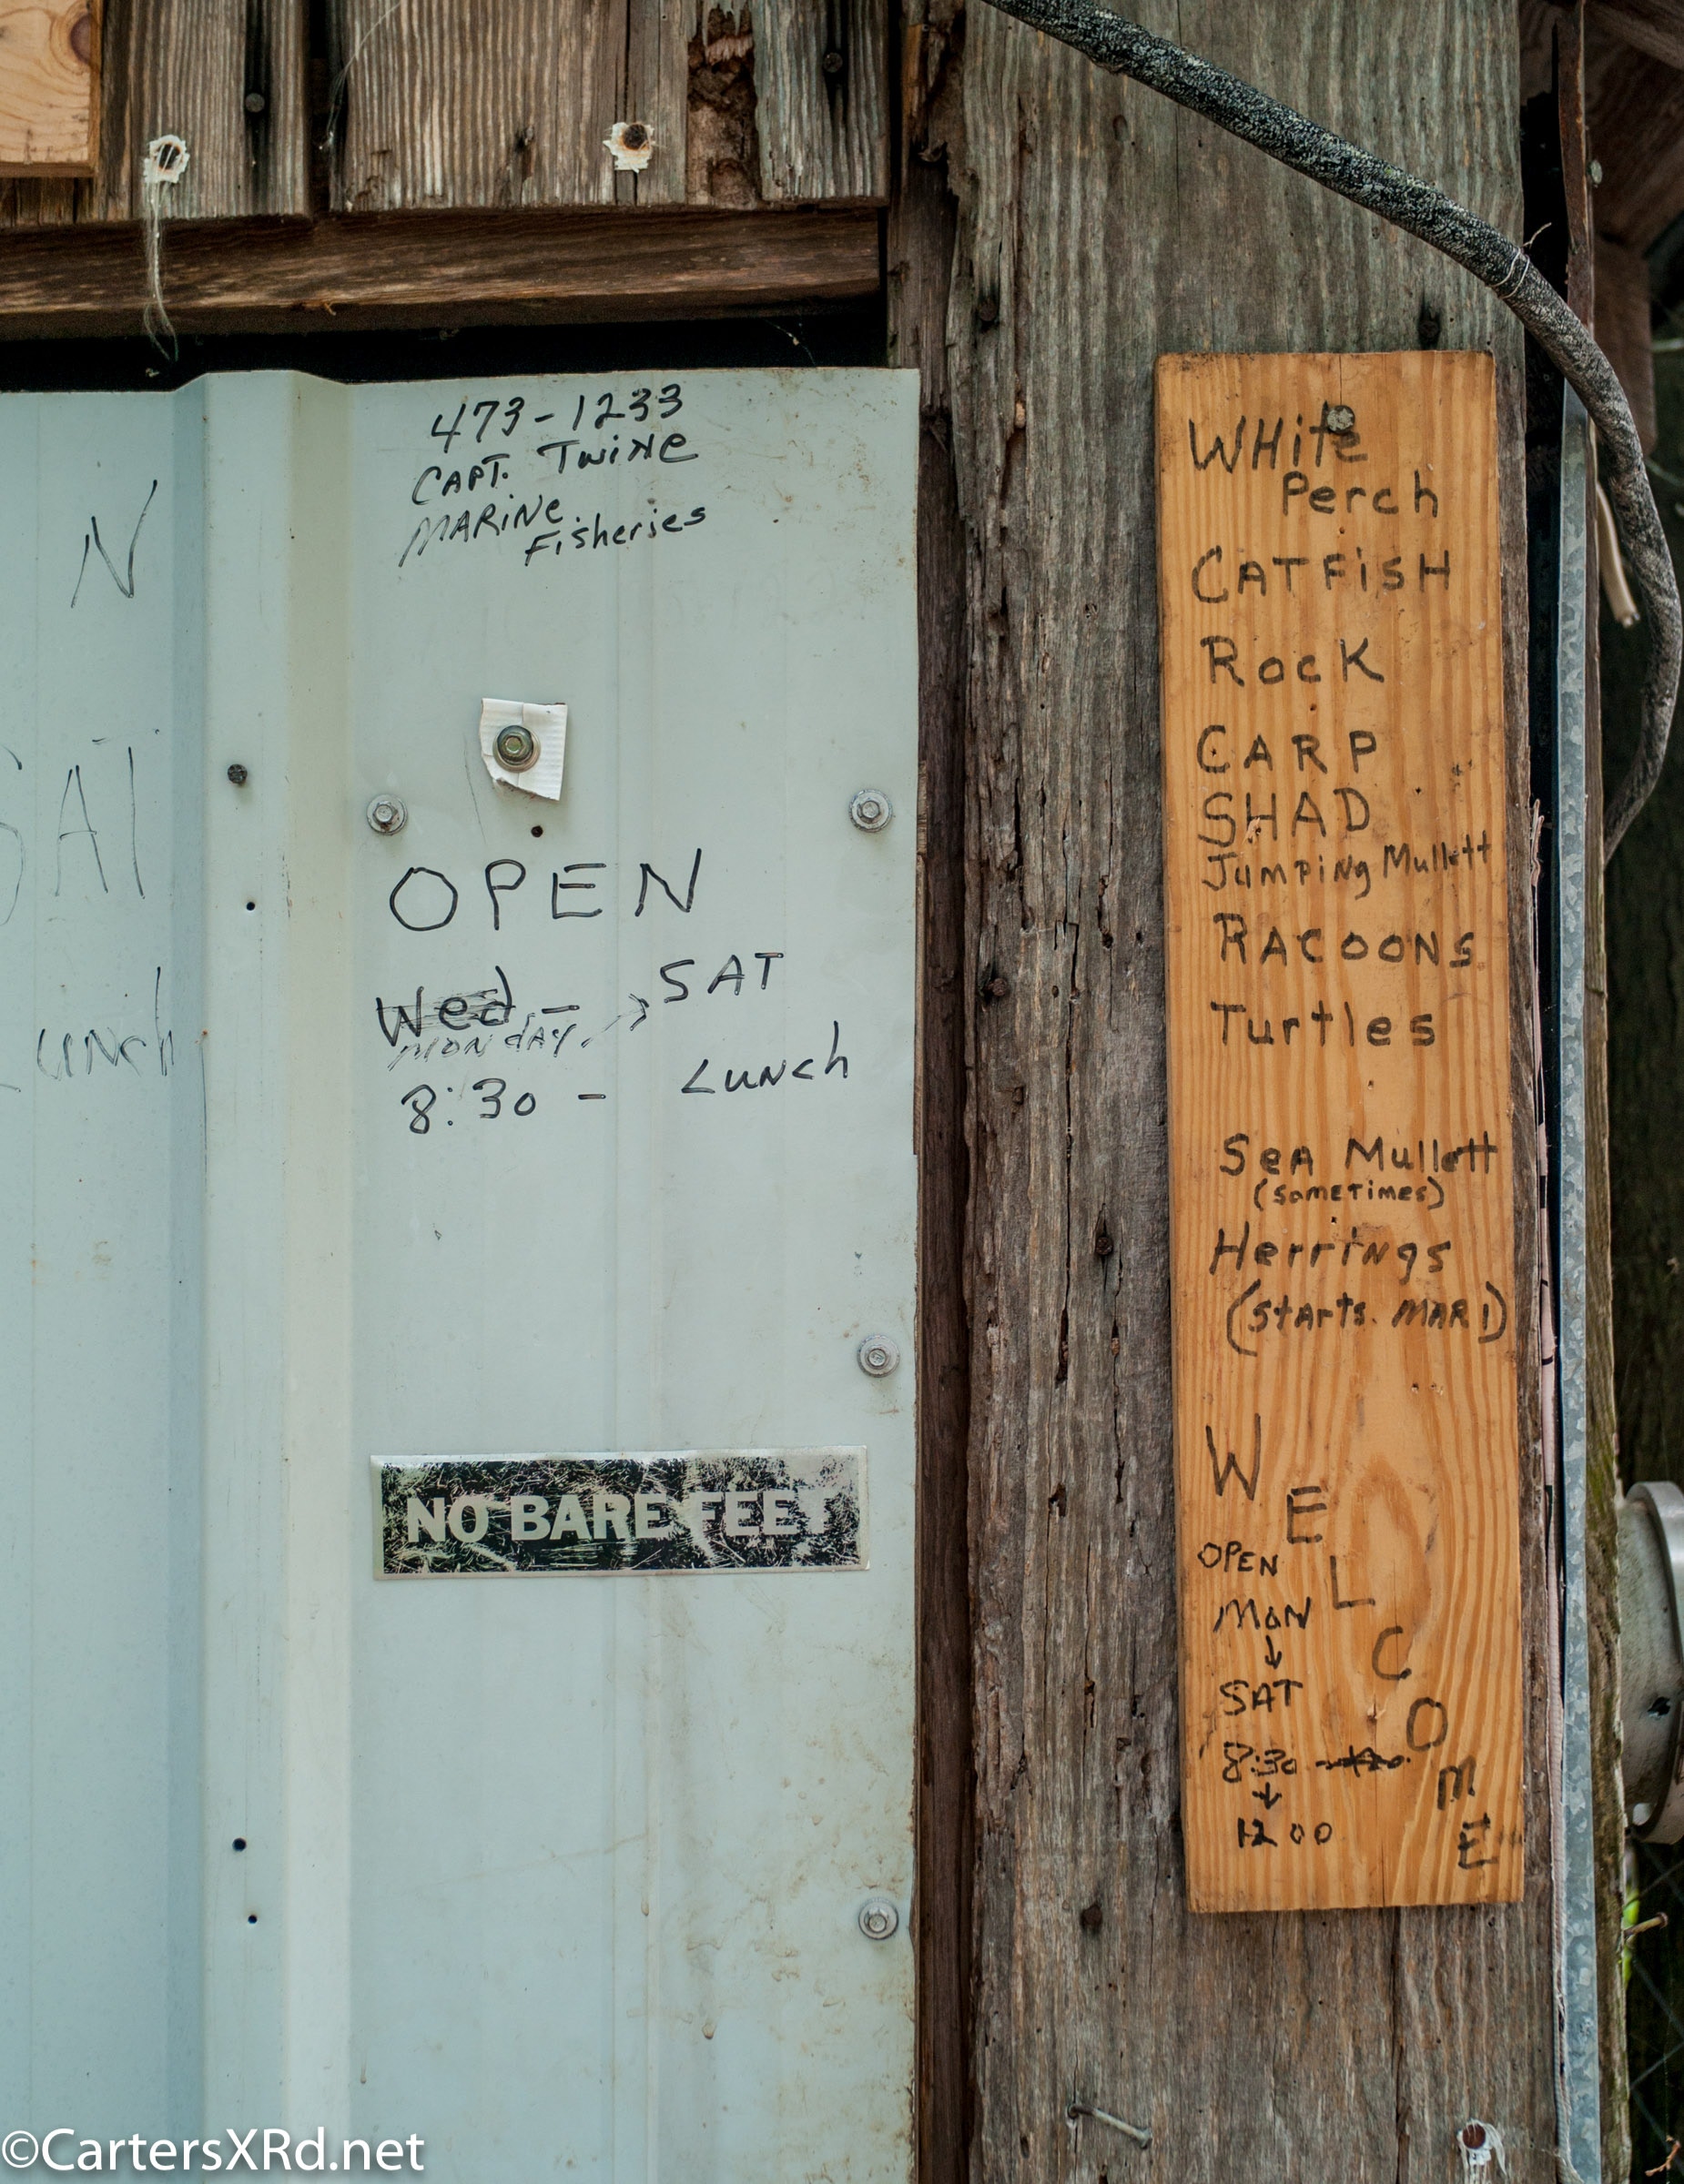 473-1233
CAPT. Twine
MARiNe
Fisheries
N
SAT
Lunch
OPEN
Wed - SAT
MONDAY
8:30 - Lunch
NO BARE FEET
WHite
Perch
CATFiSH
Rock
CARP
SHAD
Jumping Mullett
RACOONS
Turtles
SeA Mullett
(sometimes)
Herrings
(stArts. MAR 1)
WELCOME
OPEN
MON
↓
SAT
8:30
↓
12 00
©CartersXRd.net